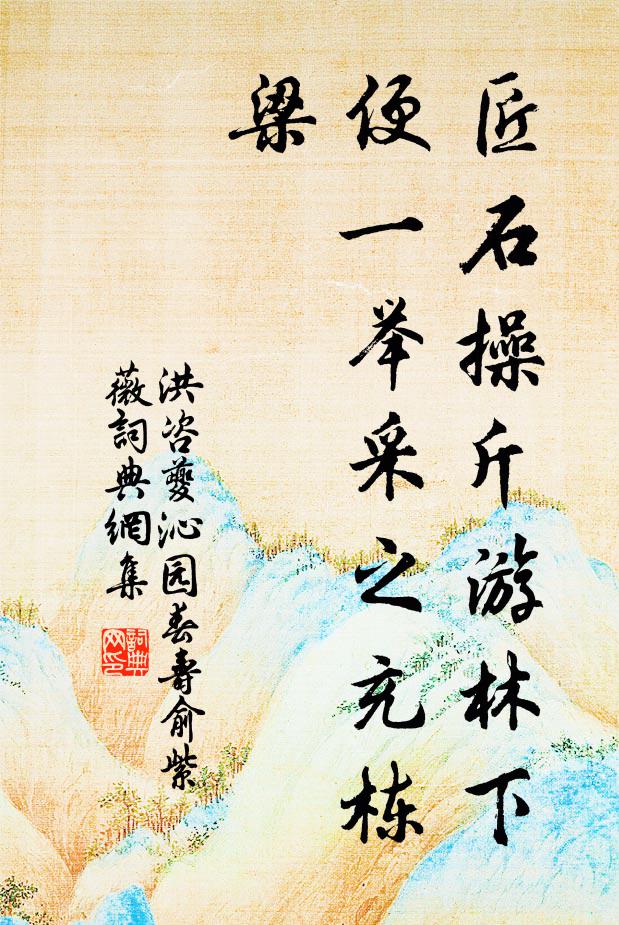 匠石操斤游林下
便一举采之充栋
梁
洪咨夔沁园春寿俞紫
薇詞典網集
詞典
网印